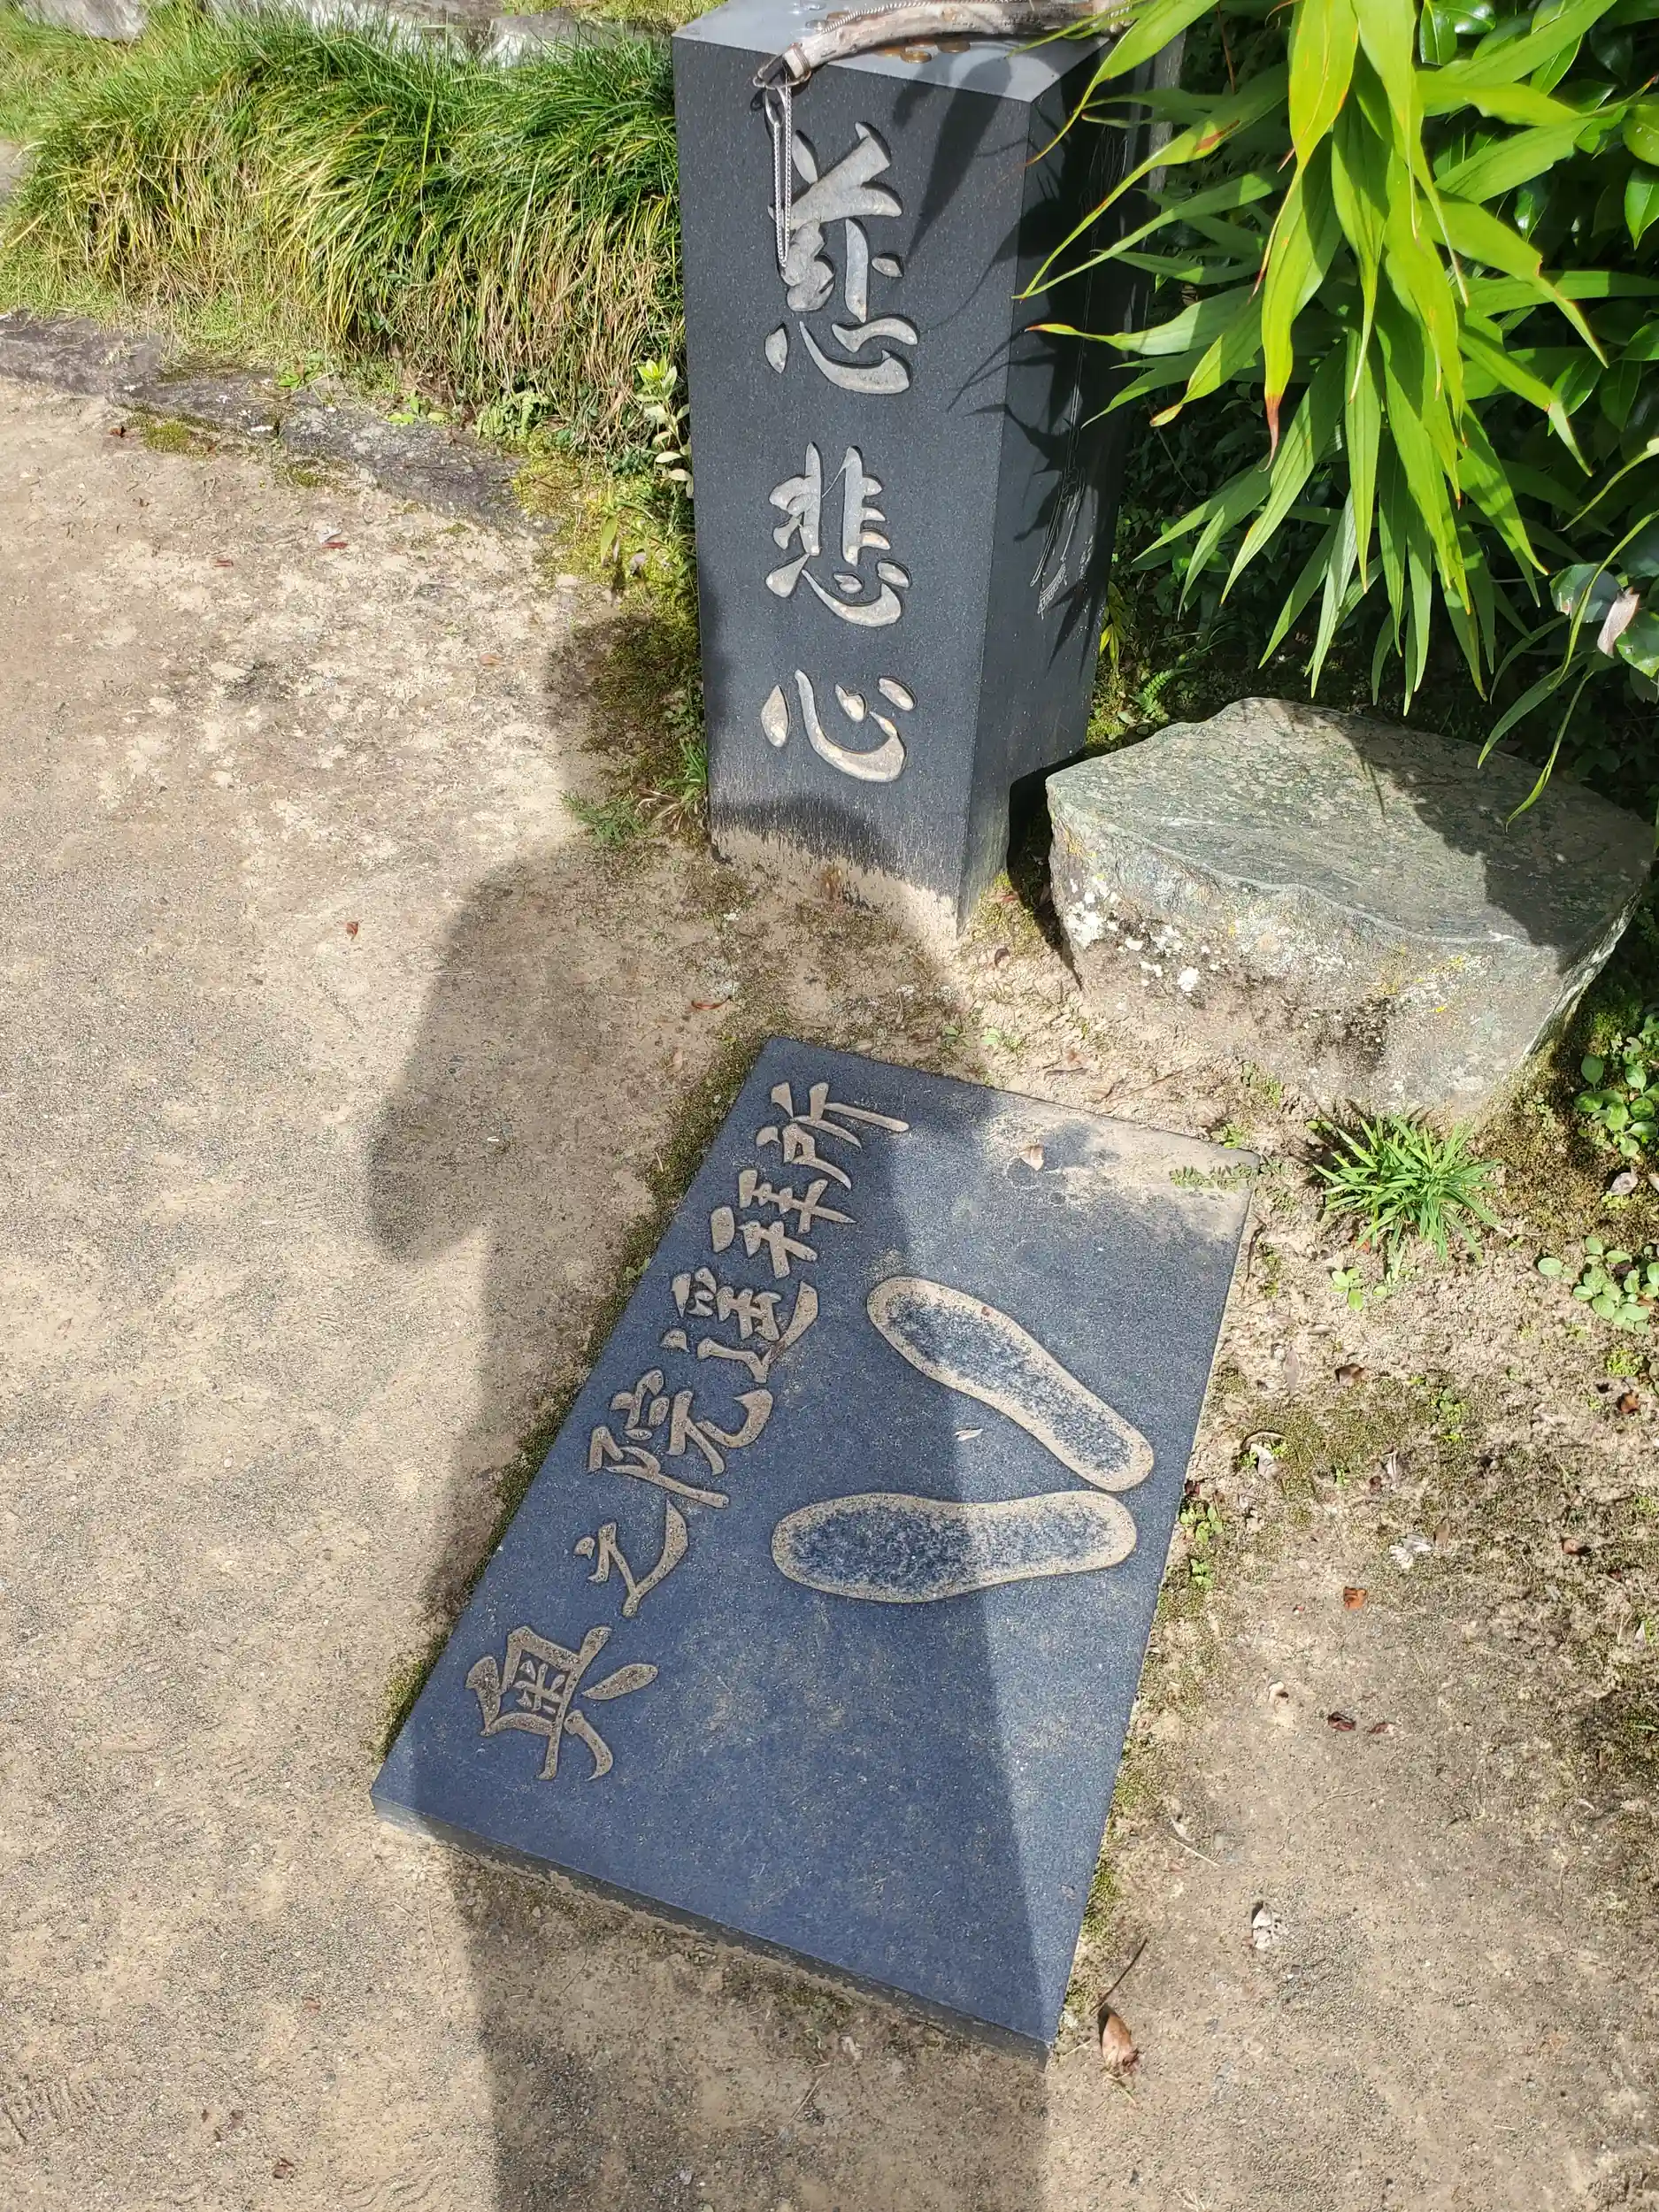 慈悲心
奥之院遥拝所